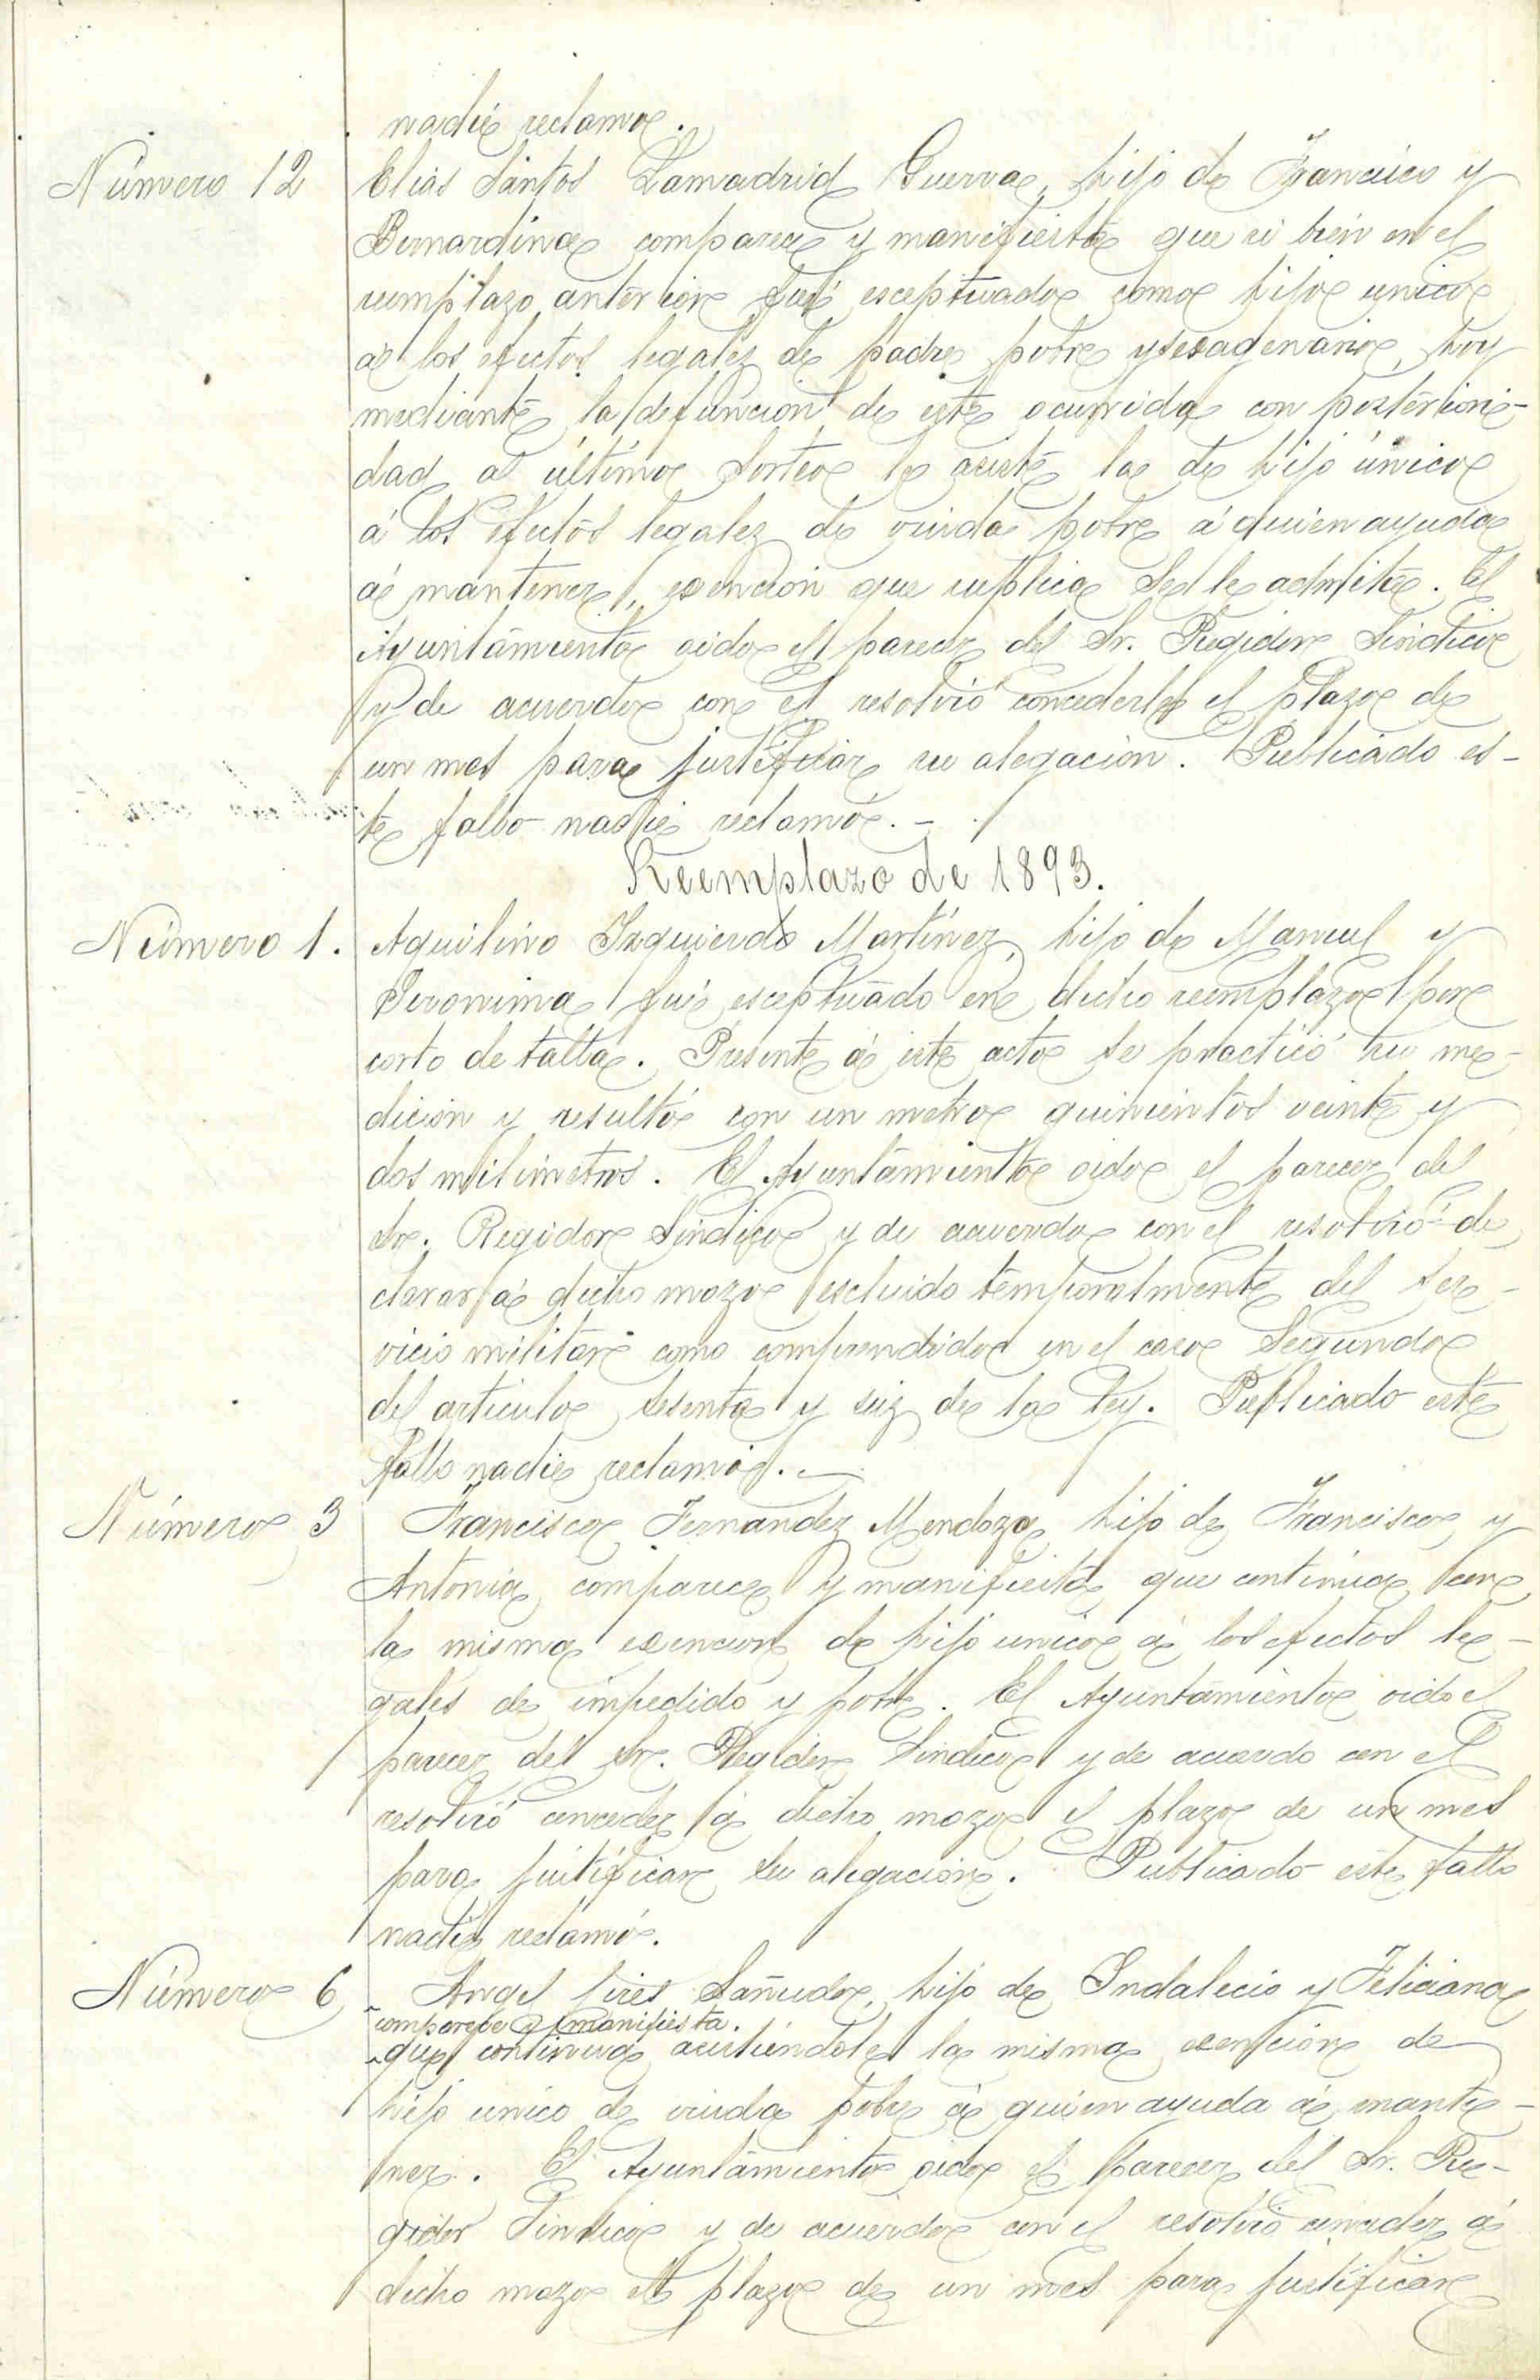 nadie reclamó.
Número 12
Elías Santos Lamadrid Guerra, hijo de Francisco y
Bernardina comparece y manifiesta que si bien en el
reemplazo anterior fué esceptuado como hijo unico
á los efectos legales de padre pobre y sesagenario, hoy
mediante la defunción de este ocurrida con posteriori-
dad al último sorteo le asiste la de hijo único
á los efectos legales de viuda pobre á quien ayuda
á mantener, exención que suplica se le admita. El
Ayuntamiento oido el parecer del Sr. Regidor Síndico
y de acuerdo con el resolvió concederle el plazo de
un mes para justificar su alegación. Publicado es-
te fallo nadie reclamó.-
Reemplazo de 1893.
Número 1.
Aquilino Izquierdo Martínez, hijo de Manuel y
Geronima fué esceptuado en dicho reemplazo por
corto de talla. Presente á este acto se practicó su me-
dición y resultó con un metro quinientos veinte y
dos milimetros. El Ayuntamiento oido el parecer del
Sr. Regidor Síndico y de acuerdo con el resolvió de
clarar á dicho mozo escluido temporalmente del ser-
vicio militar como comprendido en el caso segundo
del articulo sesenta y seiz de la Ley. Publicado este
fallo nadie reclamó.-
Número 3
Francisco Fernandez Mendoza hijo de Francisco y
Antonia comparece y manifiesta que continúa con
la misma exención de hijo unico á los efectos le-
gales de impedido y pobre. El Ayuntamiento oido el
parecer del Sr. Regidor Síndico y de acuerdo con el
resolvió conceder á dicho mozo el plazo de un mes
para justificar su alegación. Publicado este fallo
nadie reclamó.
Número 6
Angel Pires Sañudo, hijo de Indalecio y Feliciana
comparece y manifiesta.
que continua asistiéndole la misma exención de
hijo unico de viuda pobre á quien ayuda á mante-
ner. El Ayuntamiento oido el parecer del Sr. Re-
gidor Síndico y de acuerdo con el resolvió conceder á
dicho mozo el plazo de un mes para justificar